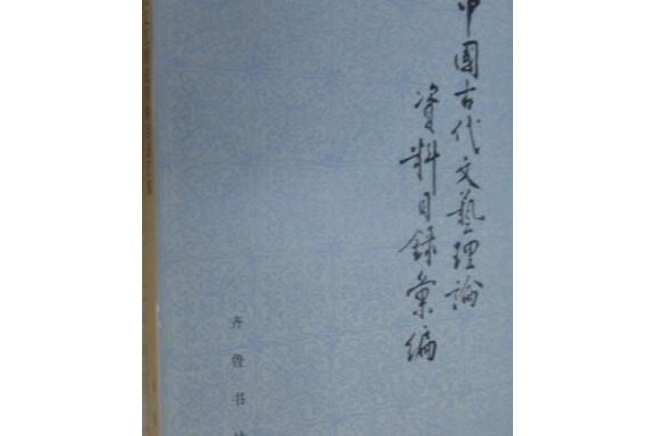 中國古代文藝理論
資料目録彙編
齐鲁书社